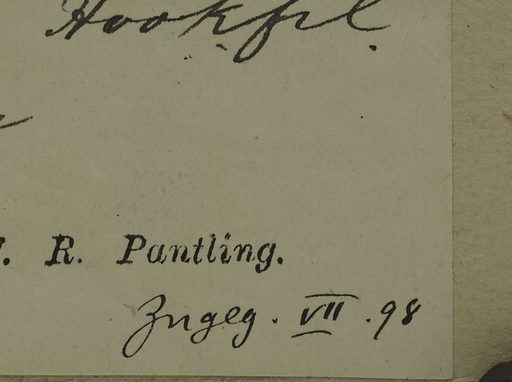 Hookfil.
R. Pantling.
Zugeg. VII. 98